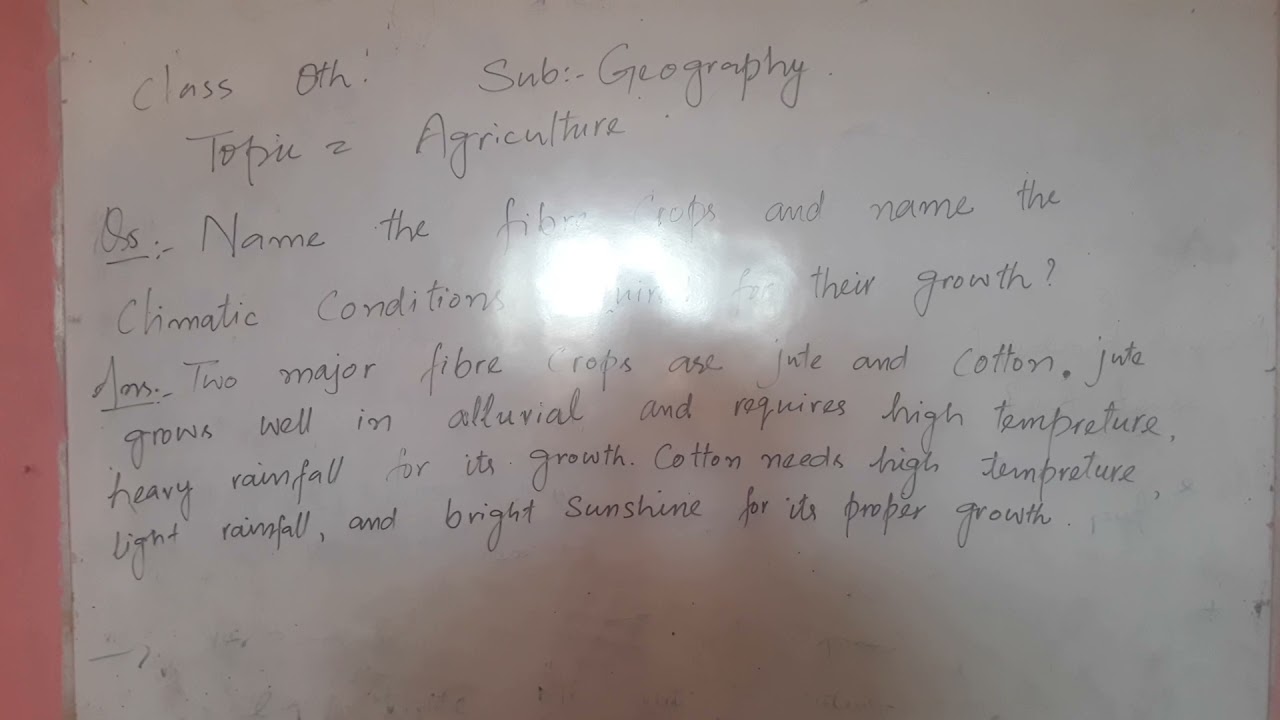 Class 8th: Sub:- Geography.
Topic = Agriculture
Qs:- Name the fibre Crops and name the
Climatic Conditions required for their growth?
Ans:- Two major fibre Crops are jute and Cotton. jute
grows well in alluvial and requires high tempreture,
heavy rainfall for its growth. Cotton needs high tempreture,
light rainfall, and bright Sunshine for its proper growth.